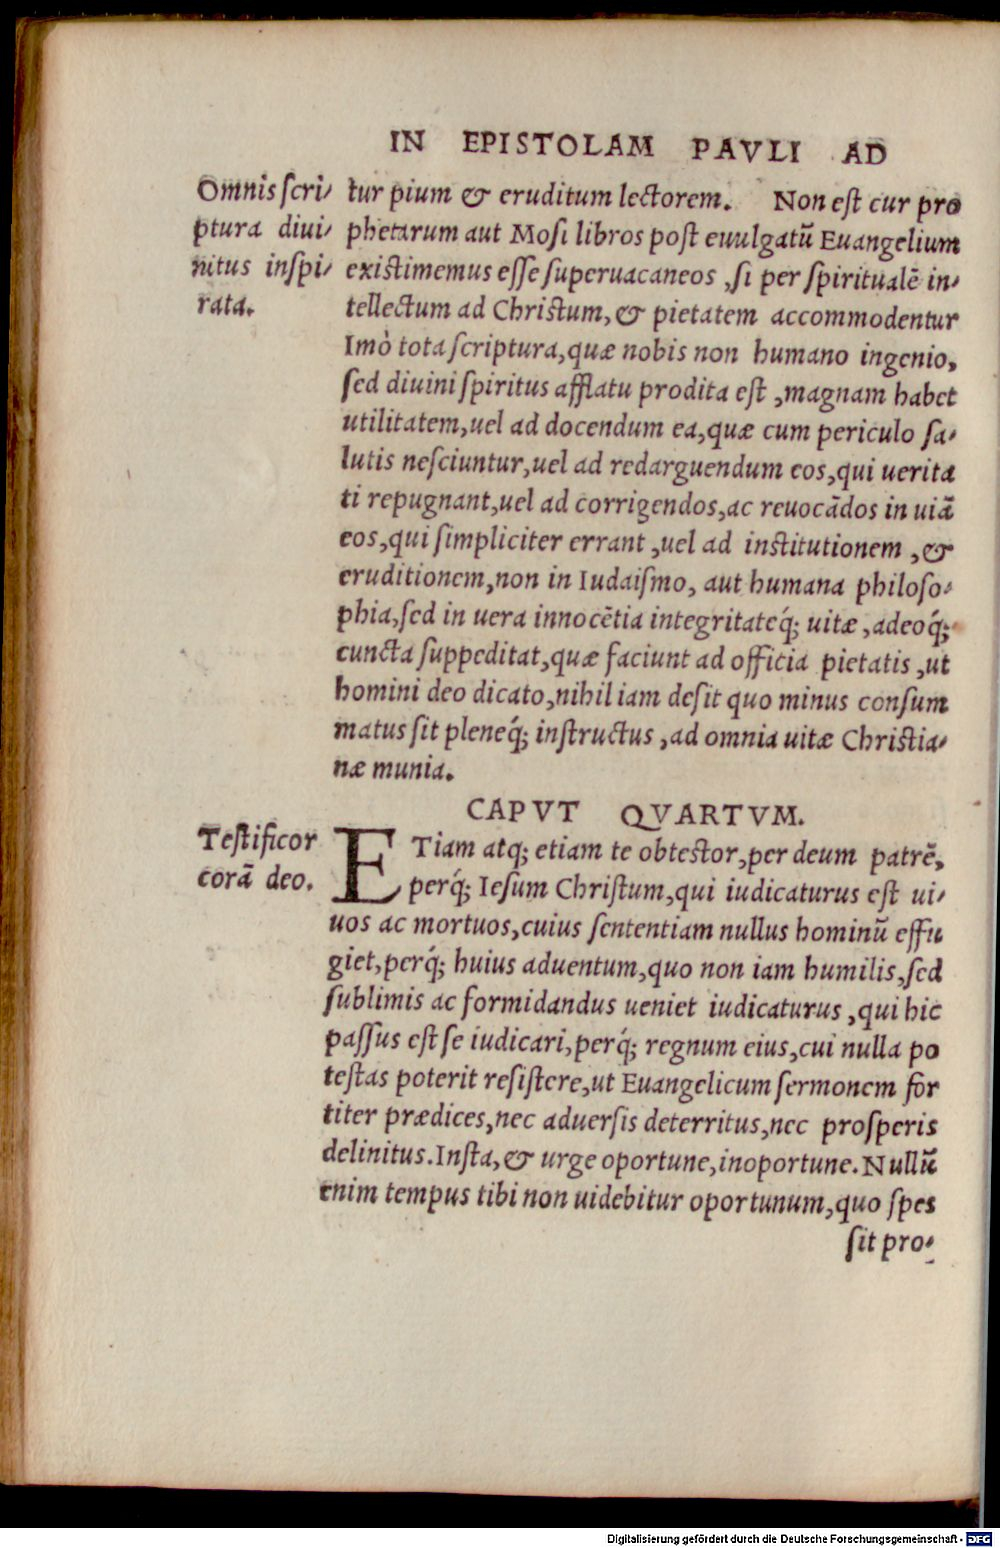 IN EPISTOLAM PAVLI AD
Omnis scri-
ptura diui-
nitus inspi-
rata.
tur pium & eruditum lectorem. Non est cur pro
phetarum aut Mosi libros post euulgatū Euangelium
existimemus esse superuacaneos, si per spiritualē in-
tellectum ad Christum, & pietatem accommodentur
Imò tota scriptura, quæ nobis non humano ingenio,
sed diuini spiritus afflatu prodita est, magnam habet
utilitatem, uel ad docendum ea, quæ cum periculo sa-
lutis nesciuntur, uel ad redarguendum eos, qui uerita
ti repugnant, uel ad corrigendos, ac reuocādos in uiā
eos, qui simpliciter errant, uel ad institutionem, &
eruditionem, non in Iudaismo, aut humana philoso-
phia, sed in uera innocētia integritateq́; uitæ, adeoq́;
cuncta suppeditat, quæ faciunt ad officia pietatis, ut
homini deo dicato, nihil iam desit quo minus consum
matus sit pleneq́; instructus, ad omnia uitæ Christia-
næ munia.
CAPVT QVARTVM.
Testificor
corā deo.
ETiam atq; etiam te obtestor, per deum patrē,
perq́; Iesum Christum, qui iudicaturus est ui-
uos ac mortuos, cuius sententiam nullus hominū effu
giet, perq́; huius aduentum, quo non iam humilis, sed
sublimis ac formidandus ueniet iudicaturus, qui hic
passus est se iudicari, perq́; regnum eius, cui nulla po
testas poterit resistere, ut Euangelicum sermonem for
titer prædices, nec aduersis deterritus, nec prosperis
delinitus. Insta, & urge oportune, inoportune. Nullū
enim tempus tibi non uidebitur oportunum, quo spes
sit pro-
Digitalisierung gefördert durch die Deutsche Forschungsgemeinschaft - DFG